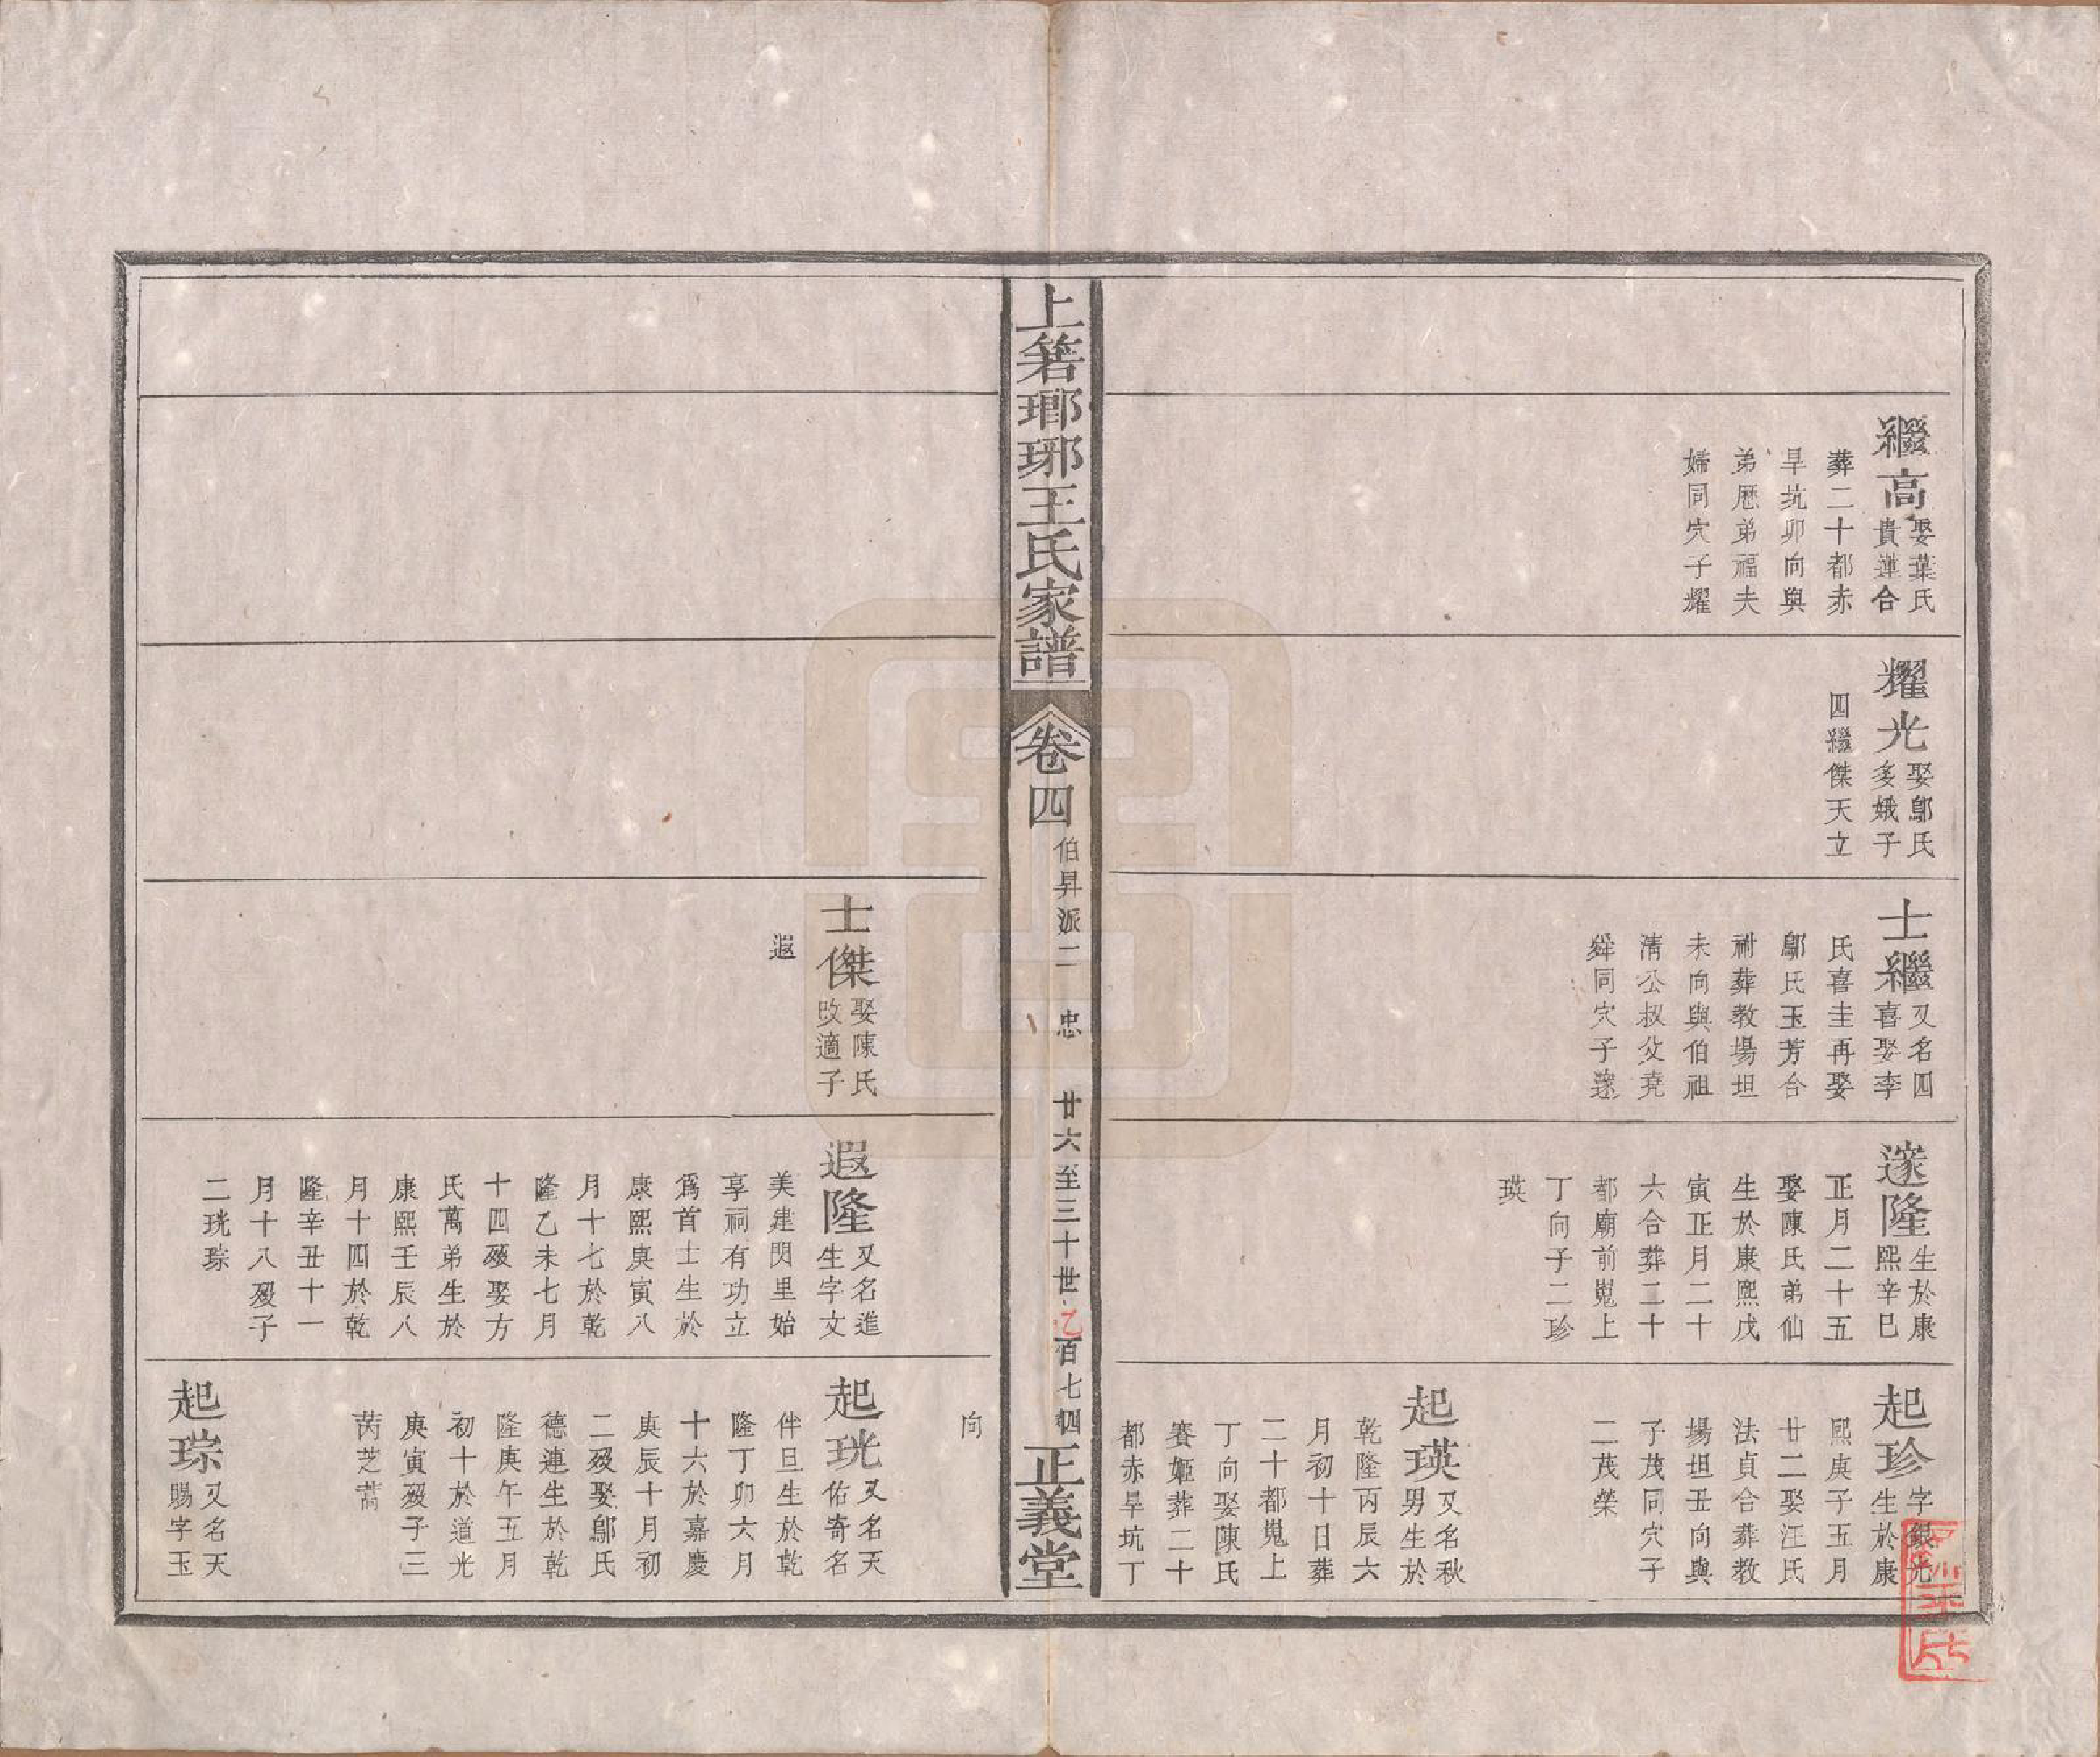 繼高
娶葉氏
貴蓮合
葬二十都赤
旱坑卯向與
弟厯弟福夫
婦同穴子耀
耀光
娶鄔氏
多娥子
四繼傑天立
士繼
又名四
喜娶李
氏喜圭再娶
鄔氏玉芳合
祔葬教場坦
未向與伯祖
清公叔父堯
舜同穴子遂
遂隆
生於康
熙辛巳
正月二十五
娶陳氏弟仙
生於康熙戊
寅正月二十
六合葬二十
都廟前嵬上
丁向子二珍
瑛
起珍
字銀光
生於康
熙庚子五月
廿二娶汪氏
法貞合葬教
場坦丑向與
子茂同穴子
二茂榮
起瑛
又名秋
男生於
乾隆丙辰六
月初十日葬
二十都嵬上
丁向娶陳氏
賽姬葬二十
都赤旱坑丁
上箬瑯琊王氏家譜
卷四
伯昇派二 忠 廿六至三十世
乙百七四
正義堂
向
士傑
娶陳氏
改適子
遐
遐隆
又名進
生字文
美建閔里始
享祠有功立
爲首士生於
康熙庚寅八
月十七於乾
隆乙未七月
十四歿娶方
氏萬弟生於
康熙壬辰八
月十四於乾
隆辛丑十一
月十八歿子
二珖琮
起珖
又名天
佑寄名
伴旦生於乾
隆丁卯六月
十六於嘉慶
庚辰十月初
二歿娶鄔氏
德連生於乾
隆庚午五月
初十於道光
庚寅歿子三
芮芝蒿
起琮
又名天
賜字玉